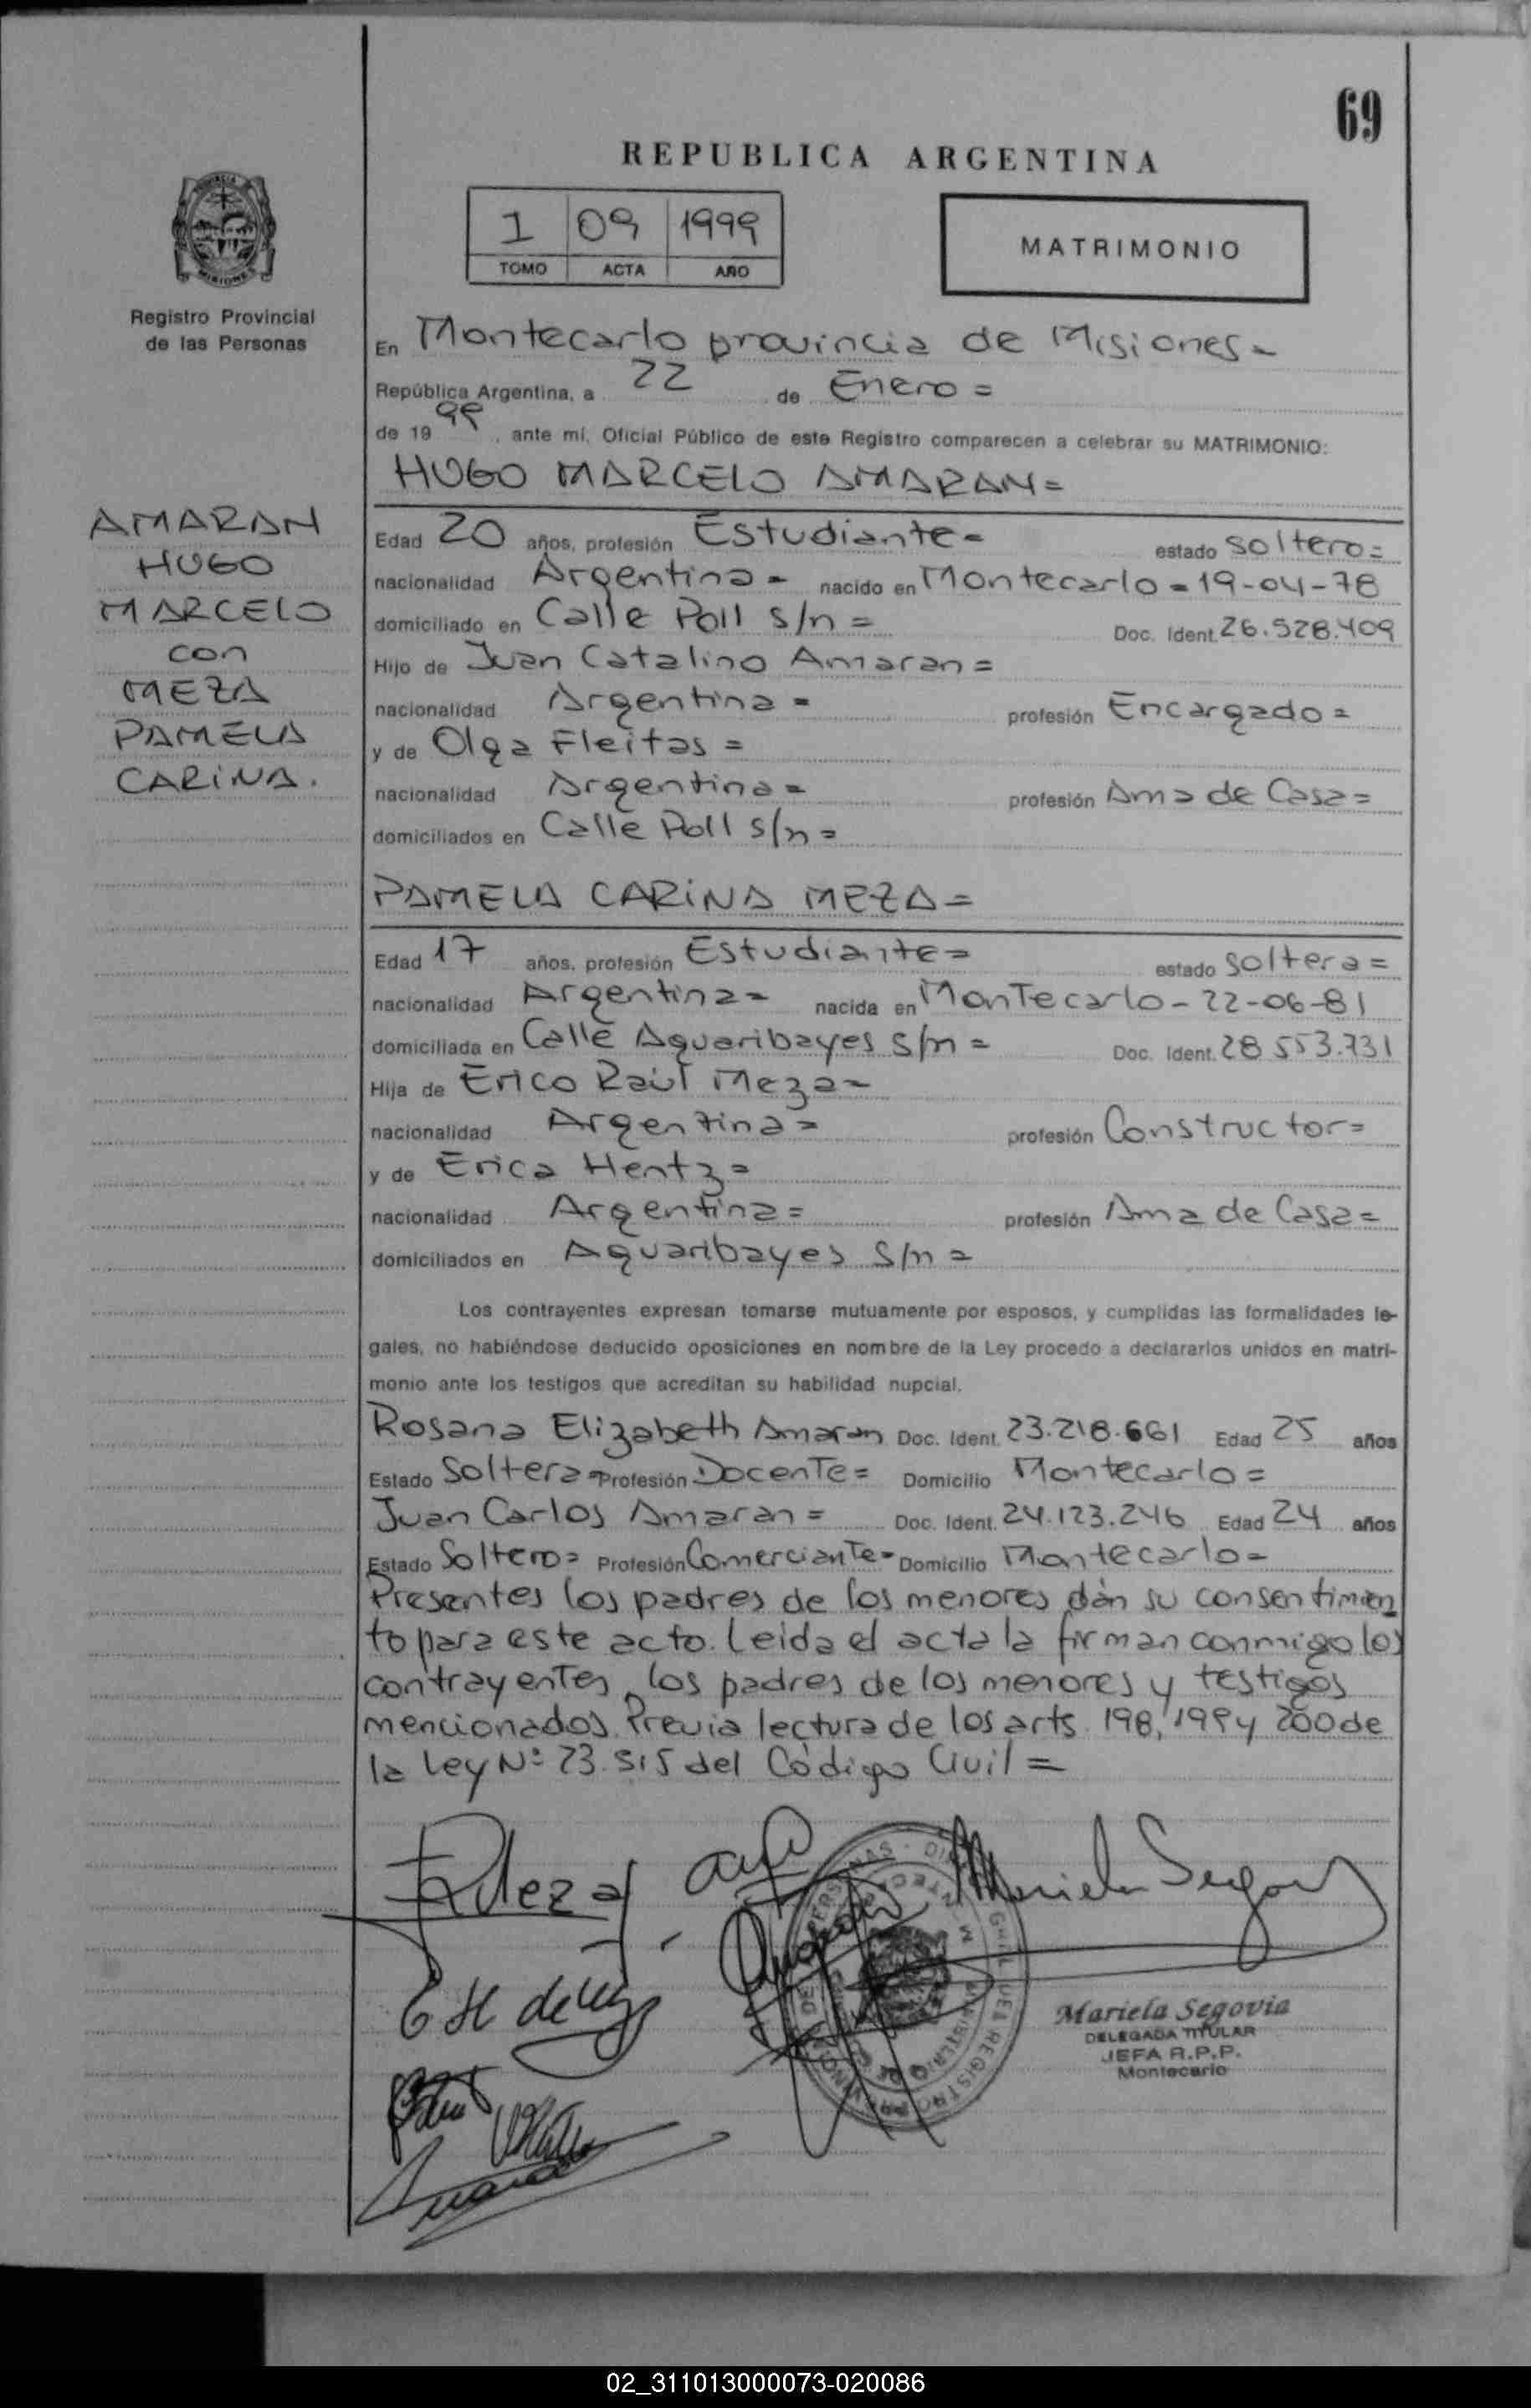 69
REPUBLICA ARGENTINA
1 09 1999
TOMO ACTA AÑO
MATRIMONIO
Registro Provincial
de las Personas
En Montecarlo provincia de Misiones-
República Argentina, a 22 de Enero =
de 19 99, ante mí, Oficial Público de este Registro comparecen a celebrar su MATRIMONIO:
HUGO MARCELO AMARAN=
AMARAN
HUGO
MARCELO
con
MEZA
PAMELA
CARINA.
Edad 20 años, profesión Estudiante= estado soltero=
nacionalidad Argentina= nacido en Montecarlo=19-04-78
domiciliado en Calle Poll s/n = Doc. Ident. 26.528.409
Hijo de Juan Catalino Amaran=
nacionalidad Argentina= profesión Encargado=
y de Olga Fleitas =
nacionalidad Argentina= profesión Ama de Casa=
domiciliados en Calle Poll s/n =
PAMELA CARINA MEZA=
Edad 17 años, profesión Estudiante= estado soltera=
nacionalidad Argentina= nacida en Montecarlo-22-06-81
domiciliada en Calle Aguaribayes s/n = Doc. Ident. 28 553.731
Hija de Erico Raúl Meza=
nacionalidad Argentina= profesión Constructor=
y de Erica Hentz=
nacionalidad Argentina= profesión Ama de Casa=
domiciliados en Aguaribayes s/n =
Los contrayentes expresan tomarse mutuamente por esposos, y cumplidas las formalidades le-
gales, no habiéndose deducido oposiciones en nombre de la Ley procedo a declararlos unidos en matri-
monio ante los testigos que acreditan su habilidad nupcial.
Rosana Elizabeth Amaran Doc. Ident. 23.218.661 Edad 25 años
Estado Soltera= Profesión Docente= Domicilio Montecarlo=
Juan Carlos Amaran= Doc. Ident. 24.123.246 Edad 24 años
Estado Soltero= Profesión Comerciante= Domicilio Montecarlo=
Presentes los padres de los menores dán su consentimien
to para este acto. Leida el acta la firman conmigo los
contrayentes, los padres de los menores y testigos
mencionados. Previa lectura de los arts. 198, 199 y 200 de
la Ley Nº 23.515 del Código Civil =
Mariela Segovia
Mariela Segovia
DELEGADA TITULAR
JEFA R.P.P.
Montecarlo
02_311013000073-020086